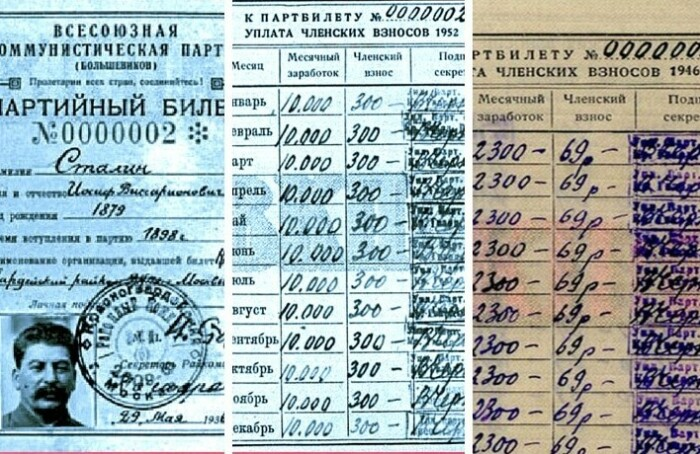 ВСЕСОЮЗНАЯ
ОММУНИСТИЧЕСКАЯ ПАРТ
(БОЛЬШЕВИКОВ)
Пролетарии всех стран, соединяйтесь!
ПАРТИЙНЫЙ БИЛЕ
№0000002
милия Сталин
я и отчество Иосиф Виссарионович
од рождения 1879
емя вступления в партию 1898г.
именование организации, выдавшей билет
Личная по
Секретарь Райкома
29 Мая 193
К ПАРТБИЛЕТУ №0000002
УПЛАТА ЧЛЕНСКИХ ВЗНОСОВ 1952
Месяц Месячный заработок Членский взнос Подп секре
нварь 10.000 300 —
евраль 10.000 300 —
арт 10.000 300 —
прель 10.000 300 —
ай 10.000 300 —
юнь 10.000 300 —
юль 10.000 300 —
вгуст 10.000 300 —
ентябрь 10.000 300 —
ктябрь 10.000 300 —
оябрь 10.000 300 —
екабрь 10.000 300 —
РТБИЛЕТУ №000000
ТА ЧЛЕНСКИХ ВЗНОСОВ 1946
Месячный заработок Членский взнос Под секр
2300 — 69р —
2300 — 69р —
2300 — 69р —
2300 — 69р —
2300 — 69р —
2300 — 69р —
2300 — 69р —
2300 — 69р —
2300 — 69р —
2300 — 69р —